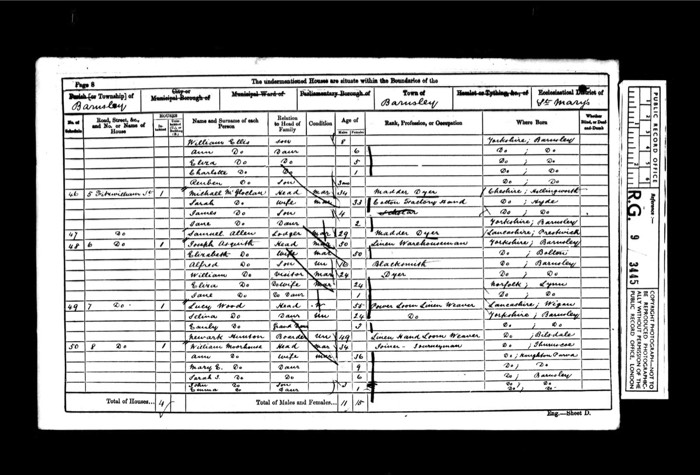 Page 8
The undermentioned Houses are situate within the Boundaries of the
Parish [or Township] of
Barnsley
City or
Municipal Borough of
Municipal Ward of
Parliamentary Borough of
Town of
Barnsley
Hamlet or Tything, &c., of
Ecclesiastical District of
St. Marys
No. of Schedule
Road, Street, &c., and No. or Name of House
HOUSES
Name and Surname of each Person
Relation to Head of Family
Condition
Age of
Males
Females
Rank, Profession, or Occupation
Where Born
Whether Blind, or Deaf-and-Dumb
William Ellis Son 8 Yorkshire; Barnsley
Ann Do Daur 6 Do ; Do
Eliza Do Do 5 Do ; Do
Charlotte Do Do 1 Do ; Do
Reuben Do Son Do ; Do
46 5 Fitzwilliam St 1 Michall Head Mar 34 Madder Dyer Cheshire; Hollingworth
Sarah Do Wife Mar 33 Cotton Factory Hand Do ; Hyde
James Do Son 4 Scholar Do ; Do
Jane Do Daur 2 Yorkshire; Barnsley
47 Do Samuel Allen Lodger Mar 29 Madder Dyer Lancashire; Prestwich
48 6 Do 1 Joseph Asquith Head Mar 50 Linen Warehouseman Yorkshire; Barnsley
Elizabeth Do Wife Mar 50 Do ; Bolton
Alfred Do Son Un 16 Blacksmith Do ; Barnsley
William Do Visitor Mar 24 Dyer Do ; Do
Eliza Do Do Wife Mar 24 Norfolk; Lynn
Jane Do Do Daur 1 Do ; Do
49 7 Do 1 Lucy Wood Head W 55 Power Loom Linen Weaver Lancashire; Wigan
Selina Do Daur Un 24 Do Yorkshire; Barnsley
Emily Do Grand Daur 3 Do ; Do
Newark Hunton Boarder Un 49 Linen Hand Loom Weaver Do ; Bilsdale
50 8 Do 1 William Moorhouse Head Mar 34 Joiner Journeyman Do ; Thurnscoe
Ann Do Wife Mar 36 Do ; Houghton Parva
Mary E. Do Daur 9 Do ; Do
Sarah J. Do Do 6 Do ; Barnsley
John Do Son 3 Do ; Do
Emma Do Daur 1 Do ; Do
Total of Houses... 4
Total of Males and Females... 11 15
Eng.—Sheet D.
PUBLIC RECORD OFFICE
Reference :-
R.G. 9 3445
COPYRIGHT PHOTOGRAPH—NOT TO BE REPRODUCED PHOTOGRAPHICALLY WITHOUT PERMISSION OF THE PUBLIC RECORD OFFICE, LONDON